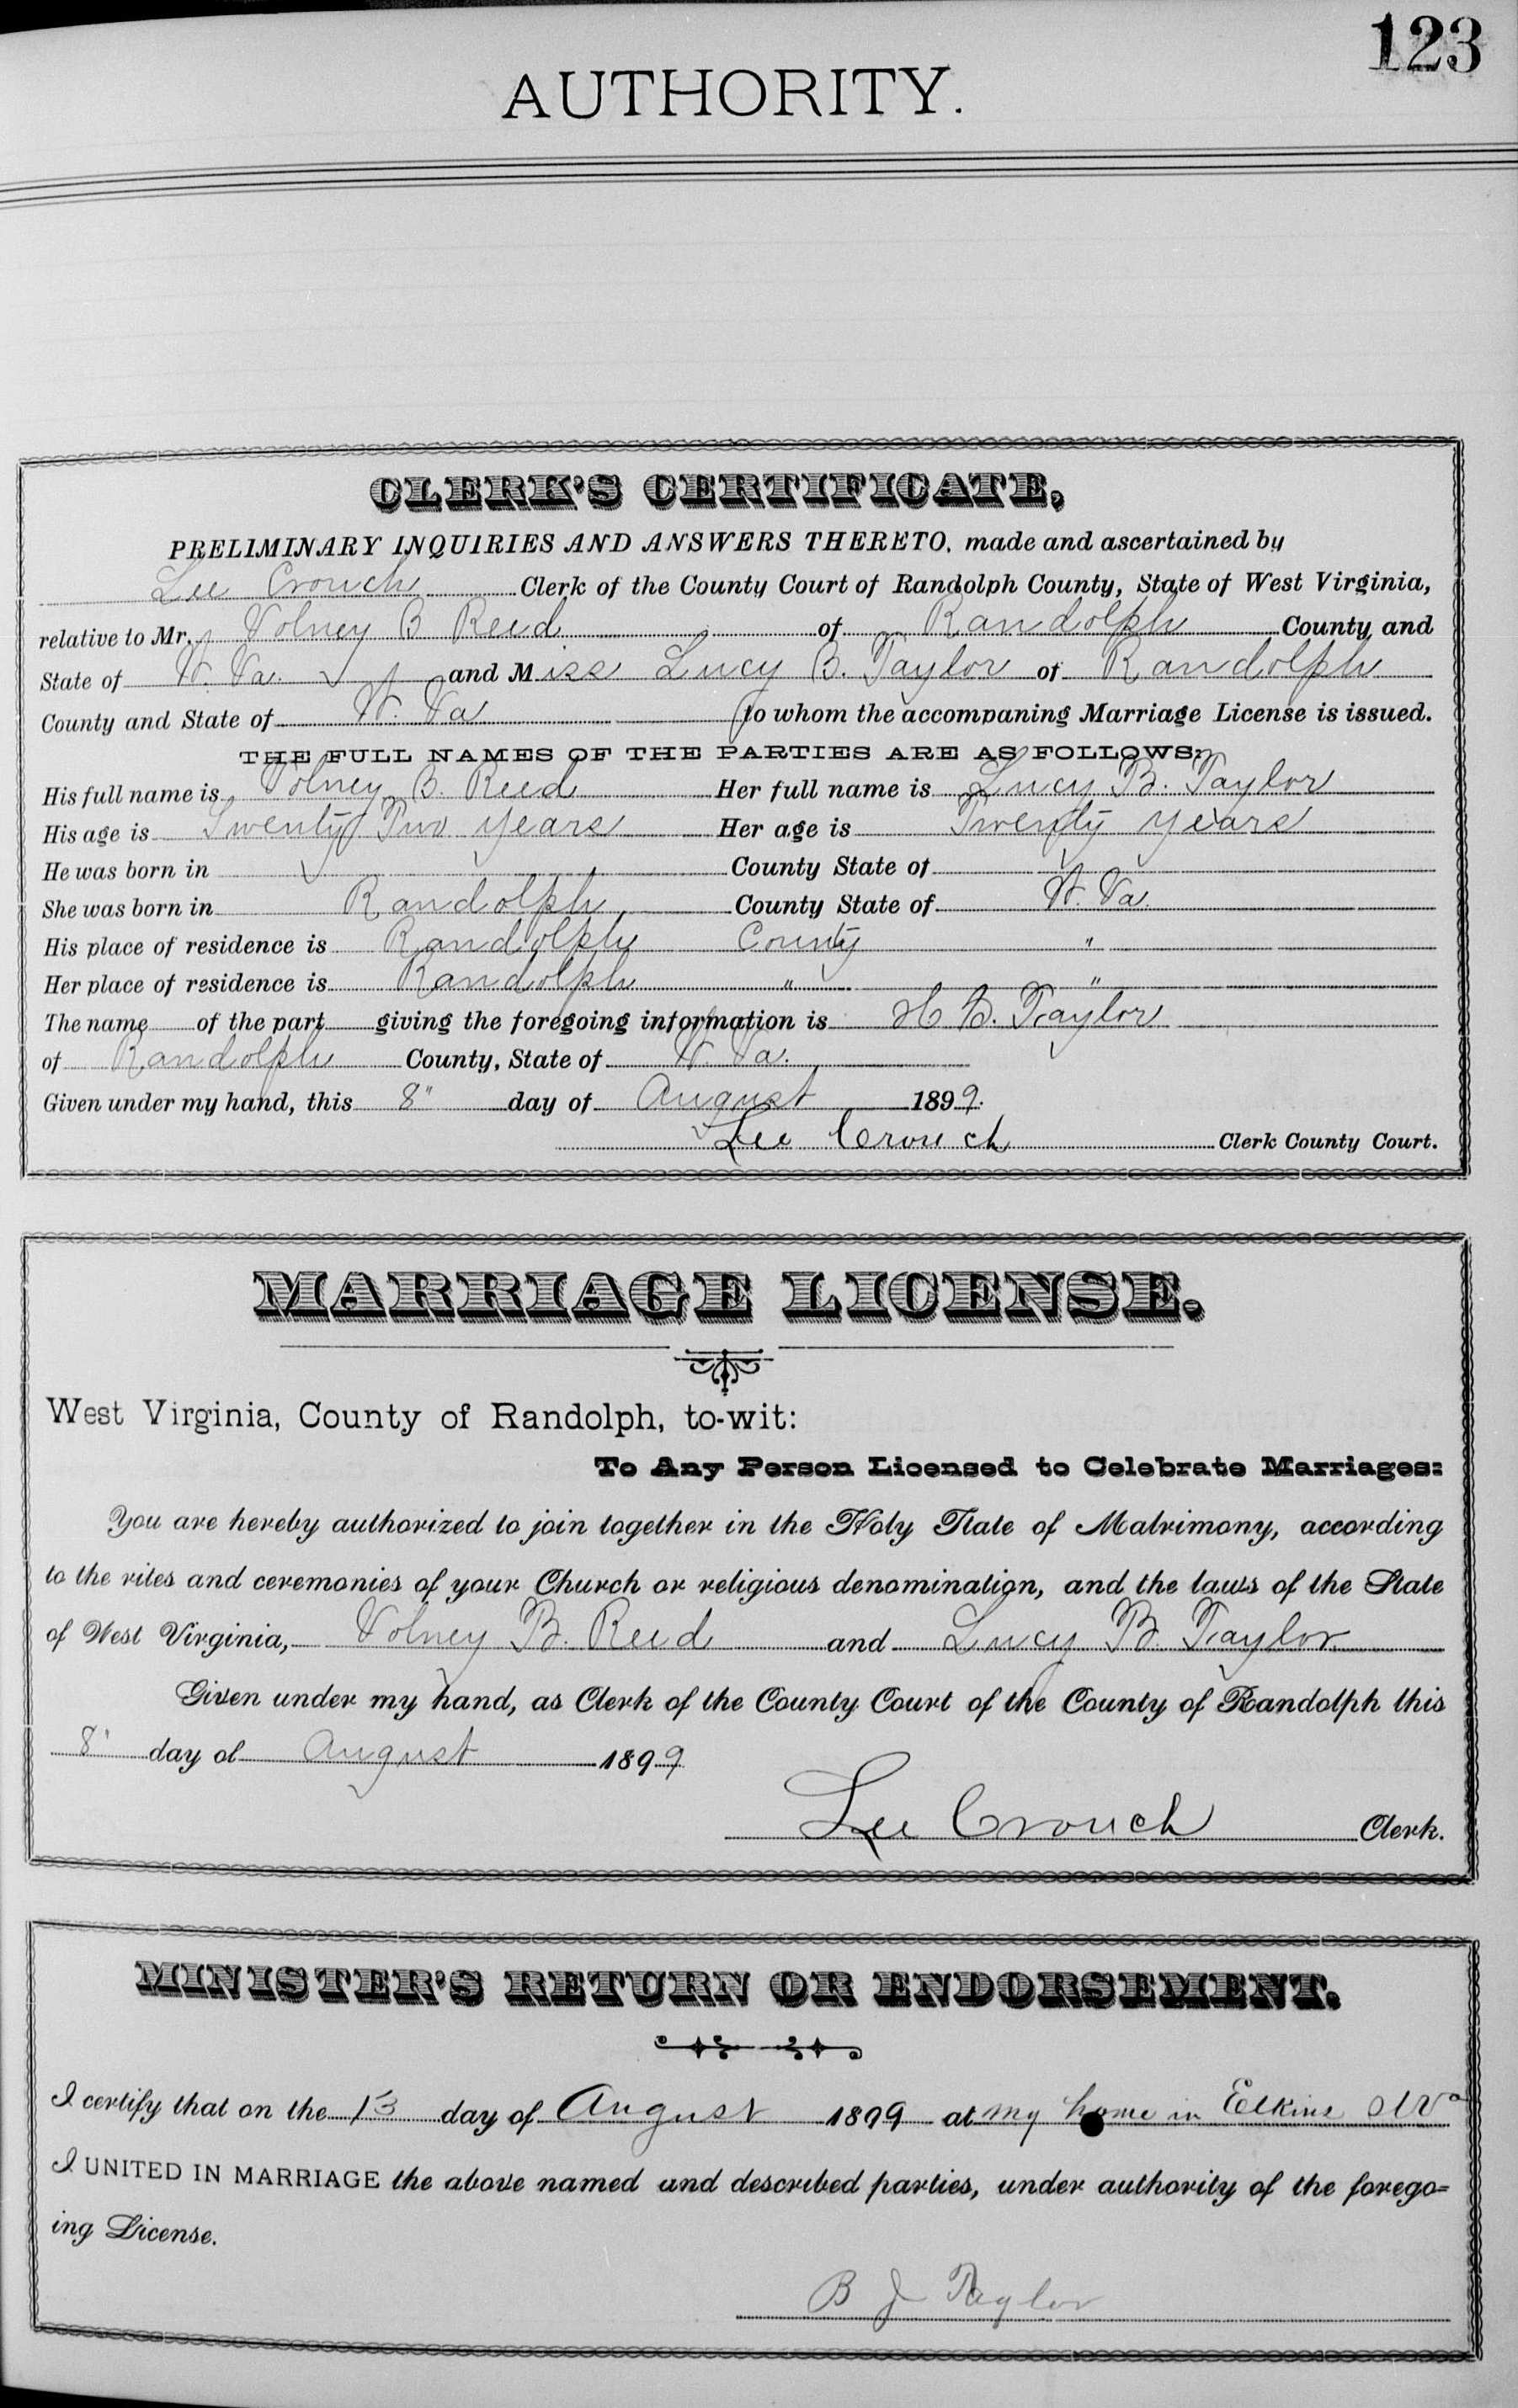 123
AUTHORITY.
CLERK'S CERTIFICATE,
PRELIMINARY INQUIRIES AND ANSWERS THERETO, made and ascertained by
Lee Crouch Clerk of the County Court of Randolph County, State of West Virginia,
relative to Mr. Volney B Reed of Randolph County and
State of W. Va. and Miss Lucy B. Taylor of Randolph
County and State of W. Va to whom the accompaning Marriage License is issued.
THE FULL NAMES OF THE PARTIES ARE AS FOLLOWS:
His full name is Volney B. Reed Her full name is Lucy B. Taylor
His age is Twenty Two years Her age is Twenty years
He was born in County State of
She was born in Randolph County State of W. Va.
His place of residence is Randolph County "
Her place of residence is Randolph " "
The name of the part giving the foregoing information is H B. Taylor
of Randolph County, State of W. Va.
Given under my hand, this 8" day of August 1899.
Lee Crouch Clerk County Court.
MARRIAGE LICENSE.
West Virginia, County of Randolph, to-wit:
To Any Person Licensed to Celebrate Marriages:
You are hereby authorized to join together in the Holy State of Matrimony, according
to the rites and ceremonies of your Church or religious denomination, and the laws of the State
of West Virginia, Volney B. Reed and Lucy B. Taylor
Given under my hand, as Clerk of the County Court of the County of Randolph this
8" day of August 1899
Lee Crouch Clerk.
MINISTER'S RETURN OR ENDORSEMENT.
I certify that on the 13 day of August 1899 at my home in Elkins
I UNITED IN MARRIAGE the above named and described parties, under authority of the forego-
ing License.
B J Taylor